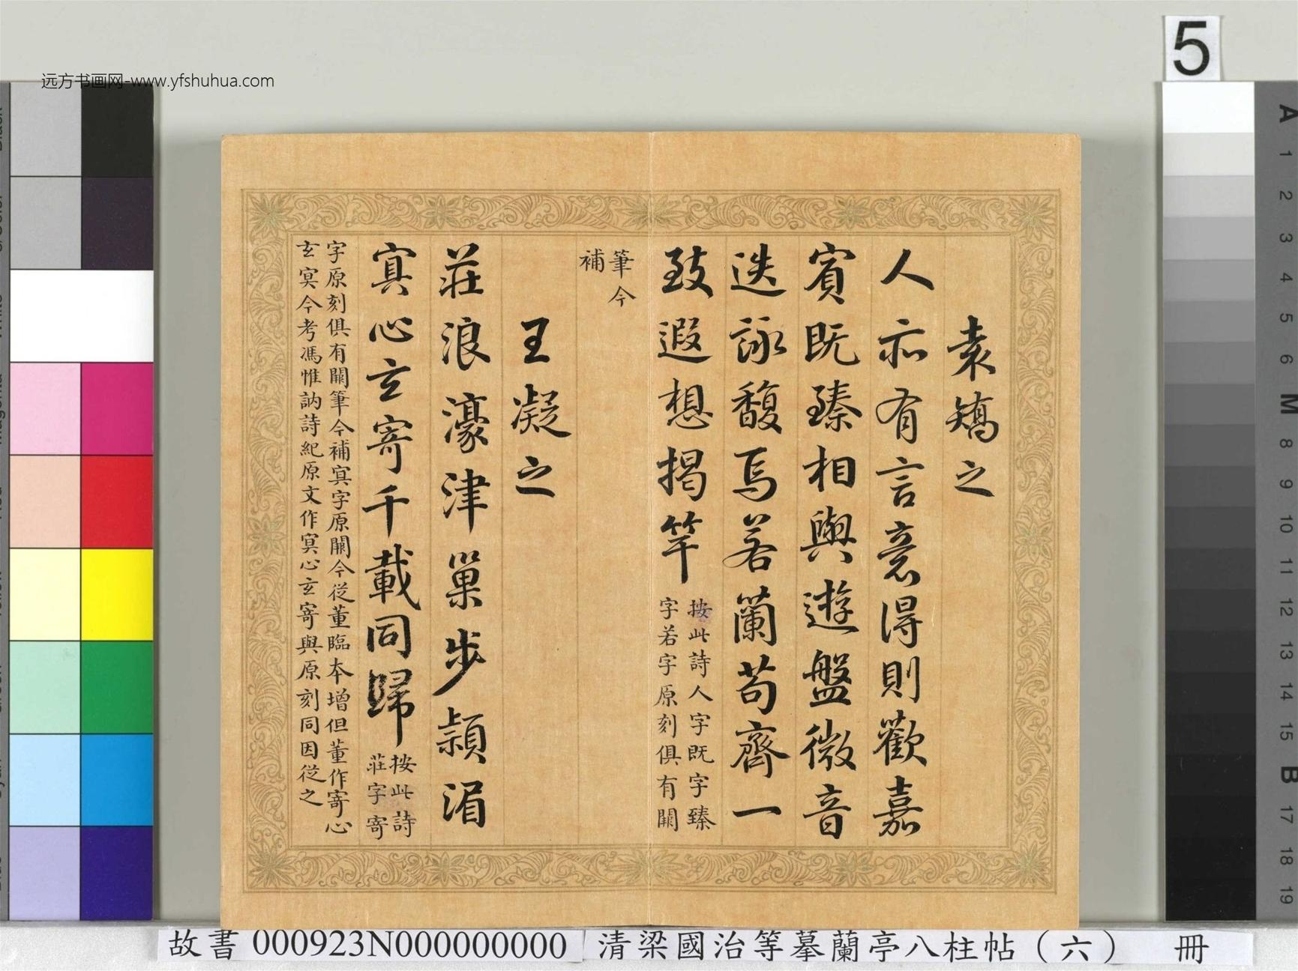 远方书画网-www.yfshuhua.com
5
袁矯之
人亦有言意得則歡嘉
賓既臻相與遊盤微音
迭詠馥焉若蘭苟齊一
致遐想揭竿
按此詩人字既字臻
字若字原刻俱有闕
筆今
補
王凝之
莊浪濠津巢步潁湄
冥心玄寄千載同歸
按此詩
莊字寄
字原刻俱有闕筆今補冥字原闕今從董臨本增但董作寄心
玄冥今考馮惟訥詩紀原文作冥心玄寄與原刻同因從之
A
1
2
3
4
5
6
M
8
9
10
11
12
13
14
15
B
17
18
19
故書 000923N000000000 清梁國治等摹蘭亭八柱帖（六） 冊